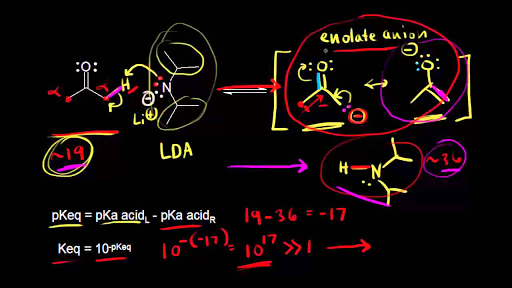 enolate anion
:O: α α H N Li⊕ ⊖ :O: ⊖ ↔ :O: ⊖
LDA
~19 H - N ~36
pKeq = pKa acidL - pKa acidR 19 - 36 = -17
Keq = 10-pKeq 10-(-17) = 1017 >> 1